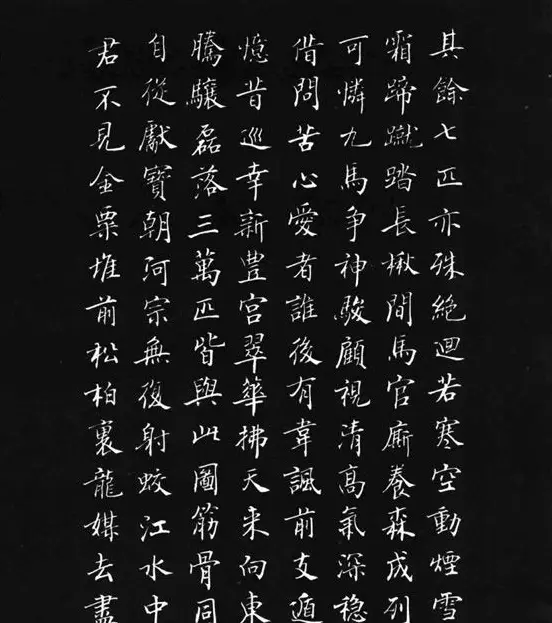 其餘七匹亦殊絕迥若寒空動煙雪
霜蹄蹴踏長楸間馬官廝養森成列
可憐九馬爭神駿顧視清高氣深穩
借問苦心愛者誰後有韋諷前支遁
憶昔巡幸新豊宮翠華拂天来向東
騰驤磊落三萬匹皆與此圖筋骨同
自從獻寶朝河宗無復射蛟江水中
君不見金粟堆前松柏裏龍媒去盡